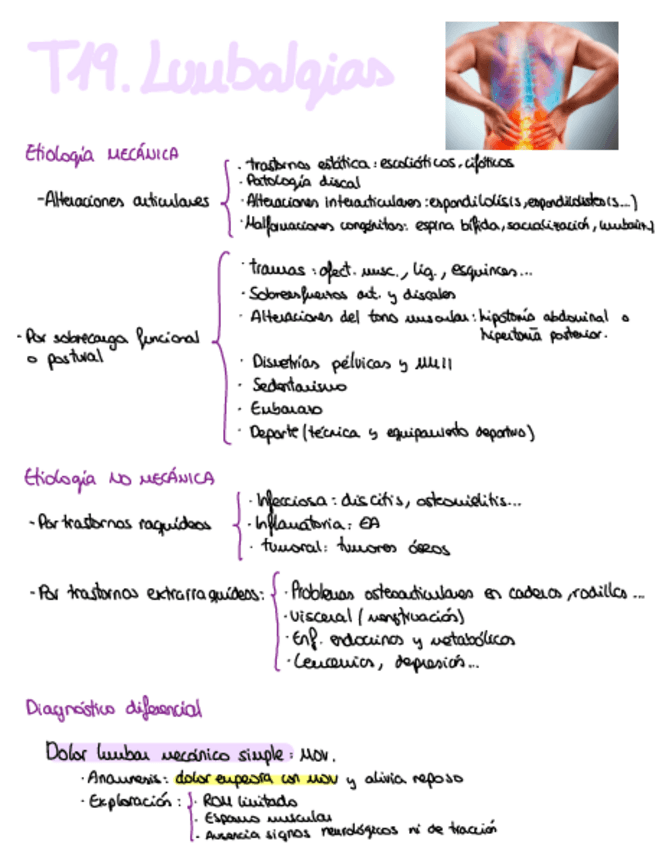 T19. Lumbalgias
Etiología MECÁNICA
-Alteraciones articulares
· trastornos estática: escolióticos, cifóticos
· Patología discal
· Alteraciones interarticulares: espondilolisis, espondilolistesis...)
· Malformaciones congénitas: espina bífida, sacralización, lumbariz)
- Por sobrecarga funcional
o postural
· traumas: afect. musc., lig., esguinces...
· Sobreesfuerzos art. y discales
· Alteraciones del tono muscular: hipotonía abdominal o
hipertonía posterior.
· Dismetrías pélvicas y MMII
· Sedentarismo
· Embarazo
· Deporte (técnica y equipamiento deportivo)
Etiología NO MECÁNICA
- Por trastornos raquídeos
· Infecciosa: discitis, osteomielitis...
· Inflamatoria: EA
· tumoral: tumores óseos
- Por trastornos extrarraquídeos:
· Problemas osteoarticulares en caderas, rodillas ...
· visceral (menstruación)
· Enf. endocrinos y metabólicos
· Leucemias, depresión...
Diagnóstico diferencial
Dolor lumbar mecánico simple: MOV.
· Anamnesis: dolor empeora con mov y alivia reposo
· Exploración:
· ROM limitado
· Espasmo muscular
· Ausencia signos neurológicos ni de tracción